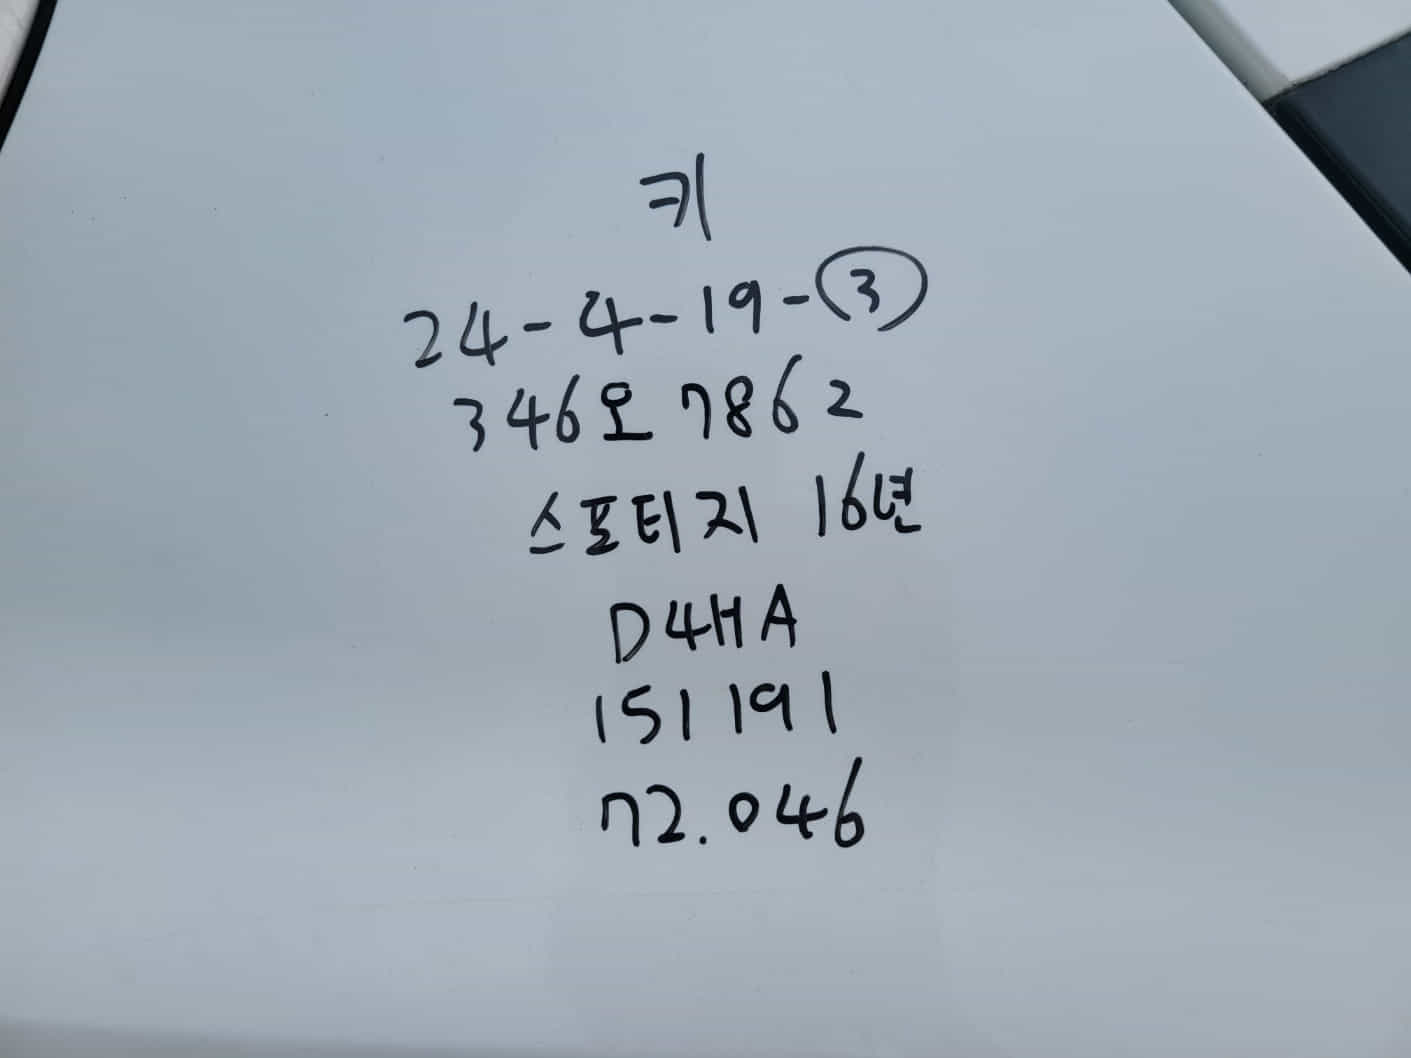 키
24-4-19-③
346오 7862
스포티지 16년
D4HA
151191
72.046